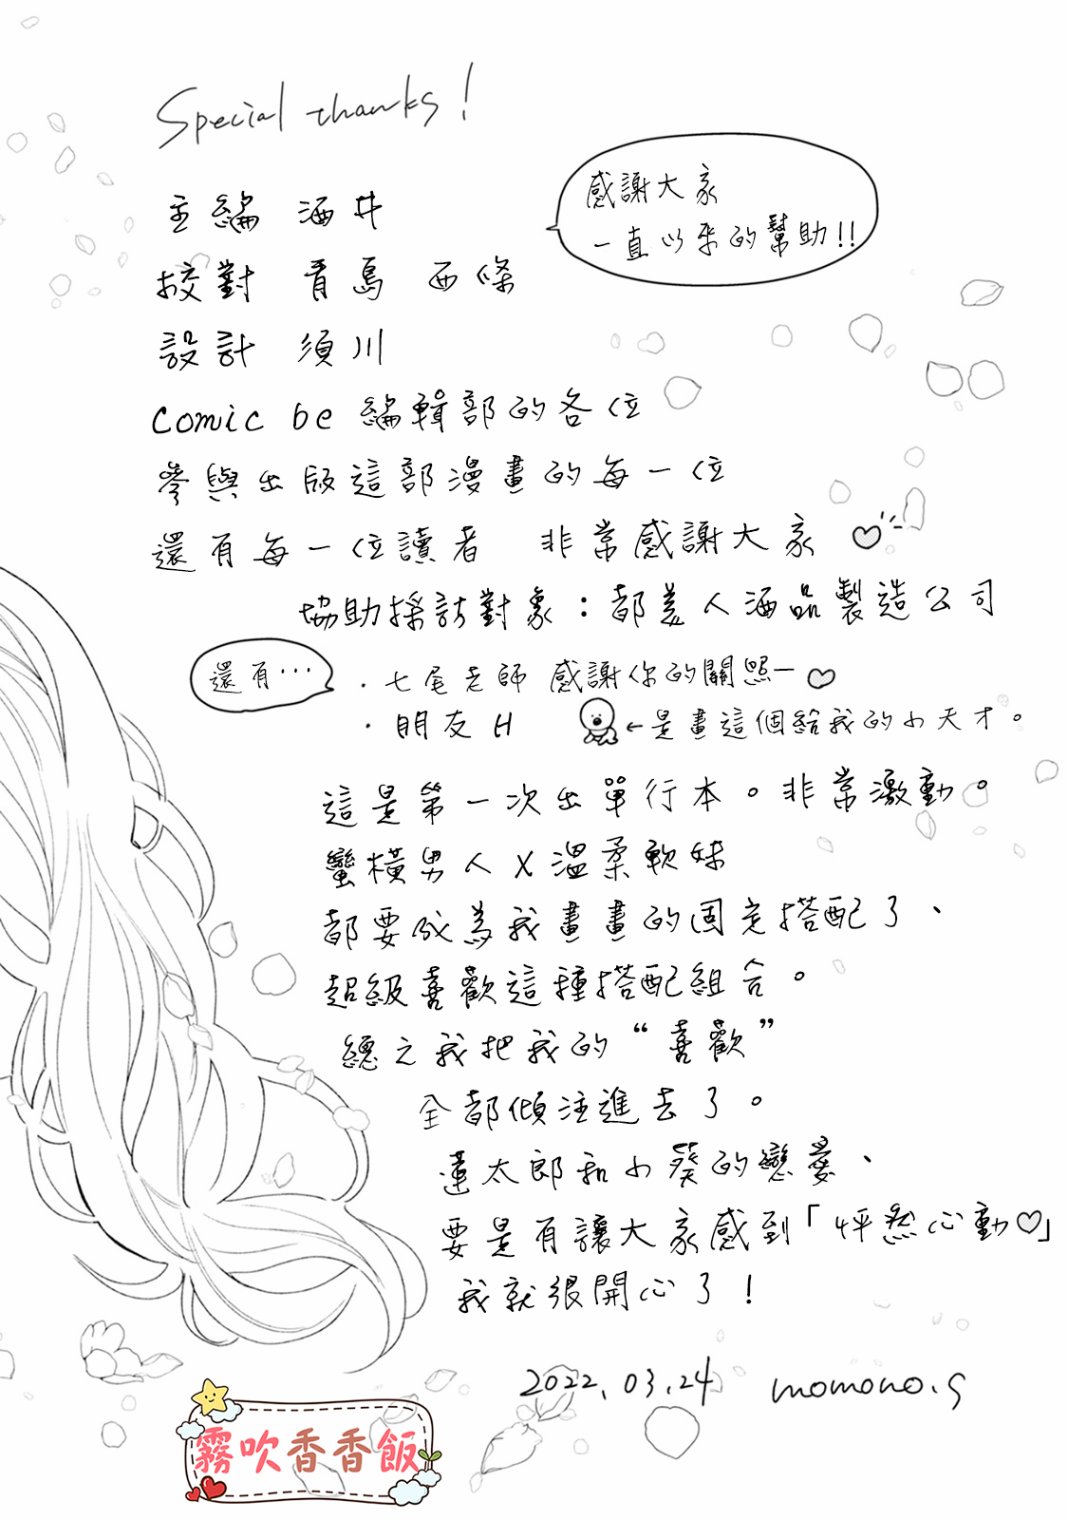 Special thanks!
感謝大家
一直以來的幫助!!
主編 酒井
校對 青島 西條
設計 須川
comic be 編輯部的各位
參與出版這部漫畫的每一位
還有每一位讀者 非常感謝大家♡
協助採訪對象：都美人酒品製造公司
還有…
・七尾老師 感謝你的關照ー♡
・朋友H ←是畫這個給我的小天才。
這是第一次出單行本。非常激動。
蠻橫男人×溫柔軟妹
都要成為我畫畫的固定搭配了、
超級喜歡這種搭配組合。
總之我把我的“喜歡”
全都傾注進去了。
蓮太郎和小葵的戀愛、
要是有讓大家感到「怦然心動♡」
我就很開心了！
2022.03.24 momono.g
霧吹香香飯